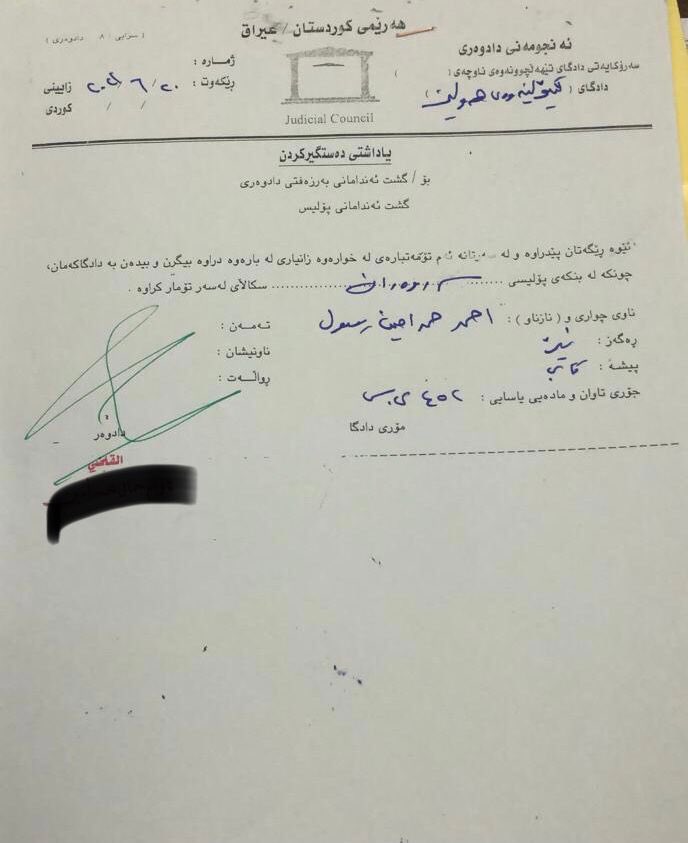 هەرێمی کوردستان / عیراق
( سزایی : ٨ دادوەری )
ئەنجومەنی دادوەری
سەرۆکایەتی دادگای تێهەڵچوونەوەی ناوچەی ( )
دادگای ( لێکۆڵینەوەی هەولێر )
ژمارە :
ڕێکەوت : ٢٠ / ٦ / زایینی
/ / کوردی
Judicial Council
یاداشتی دەستگیرکردن
بۆ / گشت ئەندامانی بەرزەفتی دادوەری
گشت ئەندامانی پۆلیس
ئێوە ڕێگەتان پێدراوە و لە سەرتانە ئەم تۆمەتبارەی لە خوارەوە زانیاری لە بارەوە دراوە بیگرن و بیدەن بە دادگاکەمان،
چونکە لە بنکەی پۆلیسی ........ سکاڵای لەسەر تۆمار کراوە .
ناوی چواری و ( نازناو ) : احمد حمد امین رسول
تەمەن :
ڕەگەز : نێر
ناونیشان :
پیشە :
ڕواڵەت :
جۆری تاوان و مادەیی یاسایی : ٤٥٢
مۆری دادگا
دادوەر
القاضي